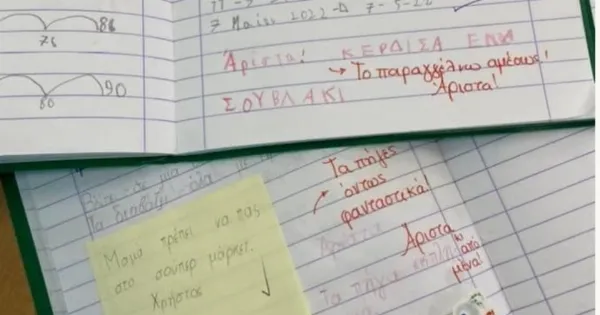 86
76
90
80
7 Μαΐου 2022
7-5-22
Άριστα! ΚΕΡΔΙΣΑ ΕΝΑ
→ Το παραγγέλνω αμέσως!
Άριστα!
ΣΟΥΒΛΑΚΙ
Τα πήγες
όντως
φανταστικά!
Μαμά πρέπει να πας
στο σούπερ μάρκετ.
Χρήστος
✓
Άριστα
κι
από
μένα!
Τα πήγα